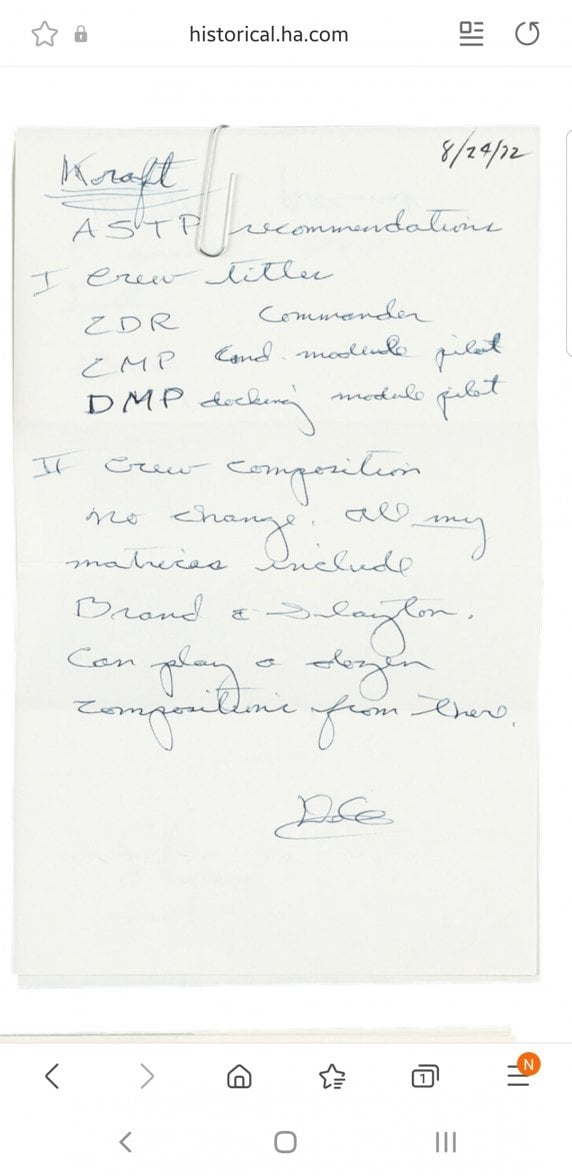 historical.ha.com
8/24/72
Kraft
ASTP recommendations
I crew titles
CDR Commander
CMP Comd. module pilot
DMP docking module pilot
II Crew composition
no change. All my
matrices include
Brand & Slayton.
Can play a dozen
compositions from there.
1
N